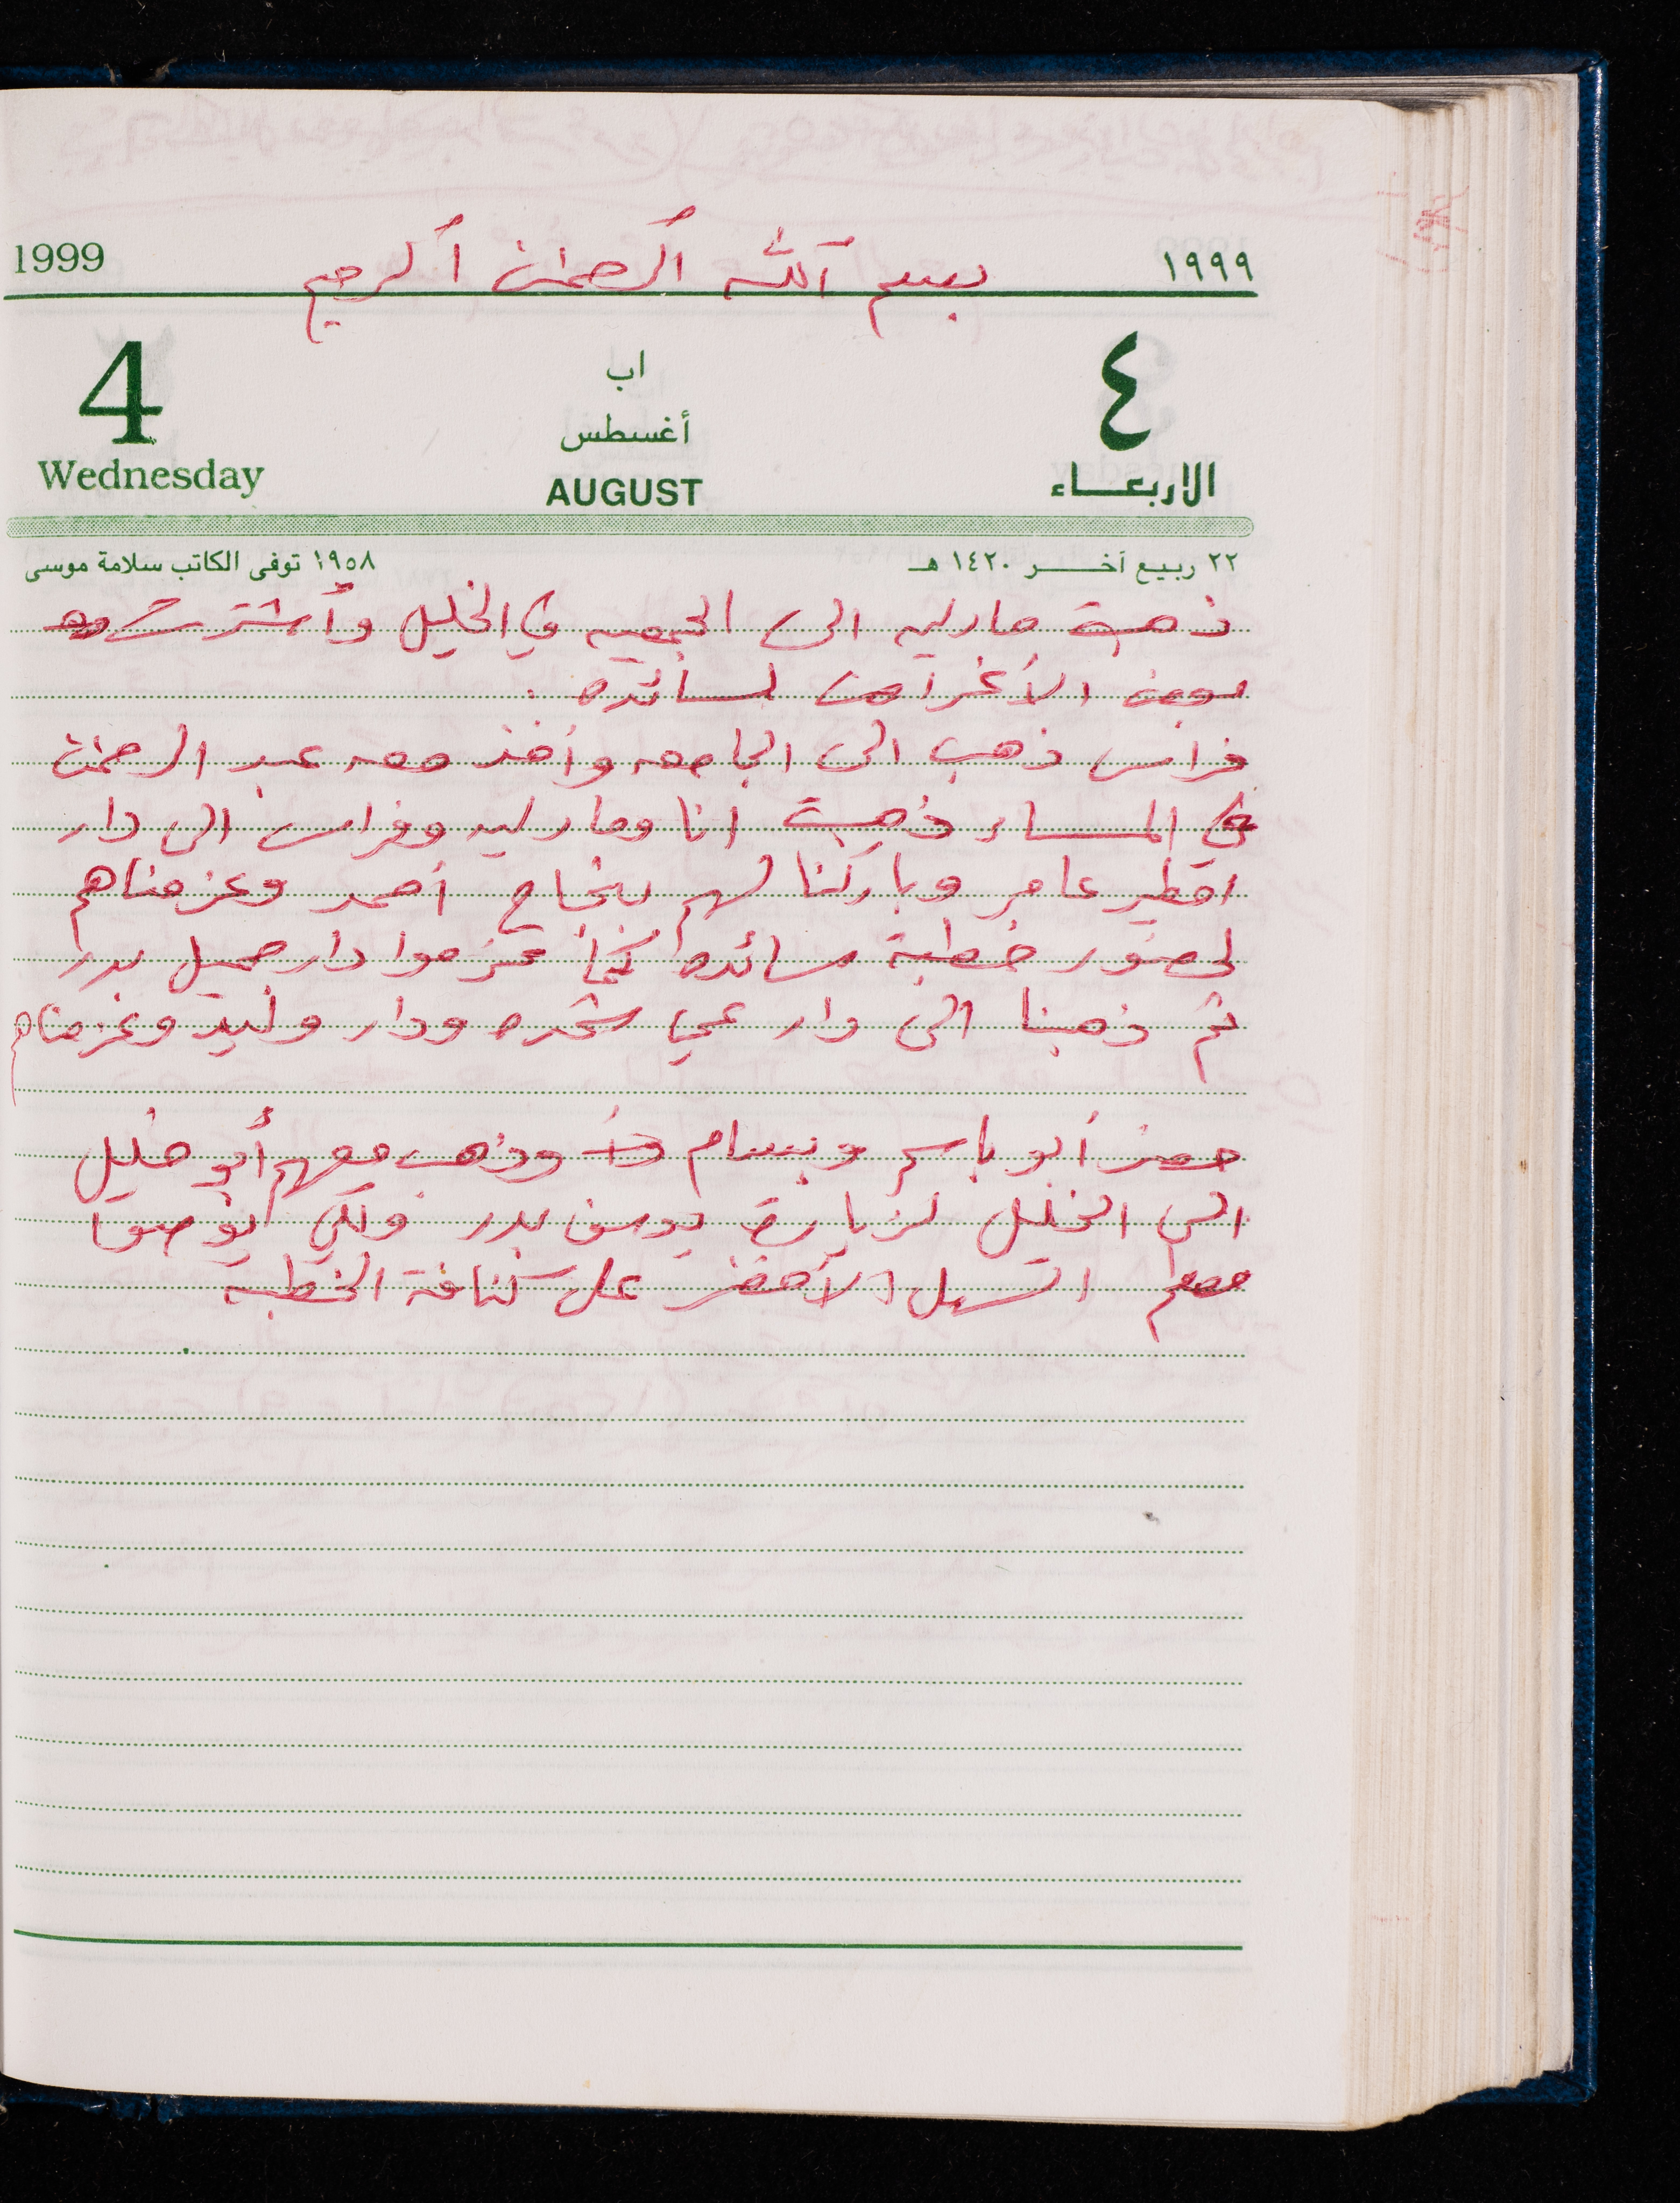 بسم الله الرحمن الرحيم
1999 ١٩٩٩
4 اب ٤
أغسطس
Wednesday AUGUST الاربعاء
٢٢ ربيع آخر ١٤٢٠ هـ ١٩٥٨ توفى الكاتب سلامة موسى
ذهبة مارليه الى الجمعيه في الخليل وأشترت
بعض الأغراض لسائده .
فراس ذهب الى الجامعه وأخذ معه عبد الرحمن
في المساء ذهبت انا ومارليه وفراس الى دار
عامر وباركنا لهم بنجاح أحمد وعزمناهم
لحضور خطبة سائده كما عزموا دار جميل بدر
ثم ذهبنا الى دار عمي شحده ودار وليد وعزمناهم
حضر أبو باسم وبسام وذهب معهم أبو خليل
الى الخليل لزيارة يوسف بدر ولكي يوصوا
محل السهل الأخضر على كنافة الخطبه